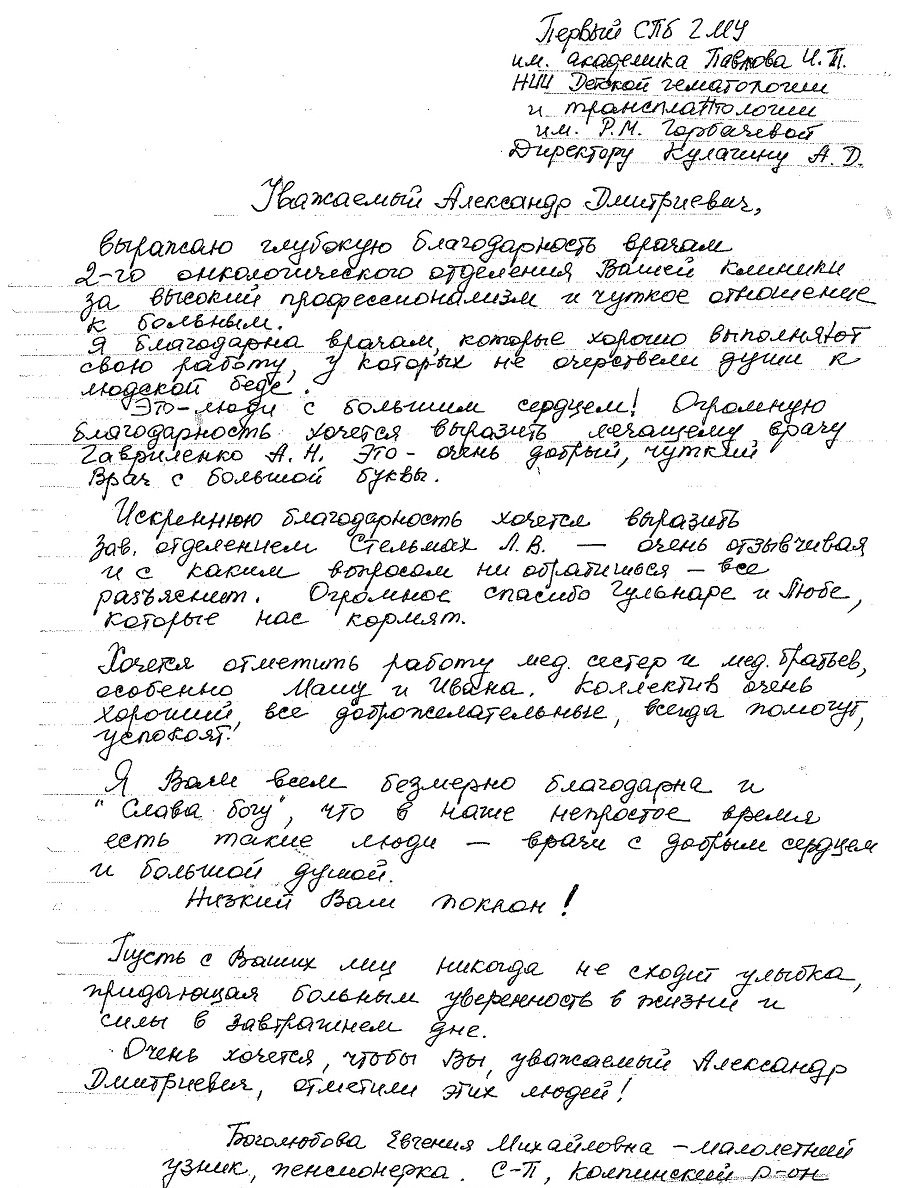 Первый СПб ГМУ
им. академика Павлова И.П.
НИИ Детской гематологии
и трансплантологии
им. Р.М. Горбачевой
Директору Кулагину А.Д.
Уважаемый Александр Дмитриевич,
выражаю глубокую благодарность врачам
2-го онкологического отделения Вашей клиники
за высокий профессионализм и чуткое отношение
к больным.
Я благодарна врачам, которые хорошо выполняют
свою работу, у которых не очерствели души к
людской беде.
Это-люди с большим сердцем! Огромную
благодарность хочется выразить лечащему врачу
Гавриленко А.Н. Это - очень добрый, чуткий
Врач с большой буквы.
Искреннюю благодарность хочется выразить
зав. отделением Стельмах Л.В. — очень отзывчивая
и с каким вопросом ни обратишься - все
разъяснит. Огромное спасибо Гульнаре и Любе,
которые нас кормят.
Хочется отметить работу мед. сестер и мед. братьев,
особенно Машу и Ивана. Коллектив очень
хороший, все доброжелательные, всегда помогут,
успокоят.
Я Вам всем безмерно благодарна и
"Слава богу", что в наше непростое время
есть такие люди — врачи с добрым сердцем
и большой душой.
Низкий Вам поклон!
Пусть с Ваших лиц никогда не сходит улыбка,
придающая больным уверенность в жизни и
силы в завтрашнем дне.
Очень хочется, чтобы Вы, уважаемый Александр
Дмитриевич, отметили этих людей!
Боголюбова Евгения Михайловна - малолетний
узник, пенсионерка. С-П, Колпинский р-он